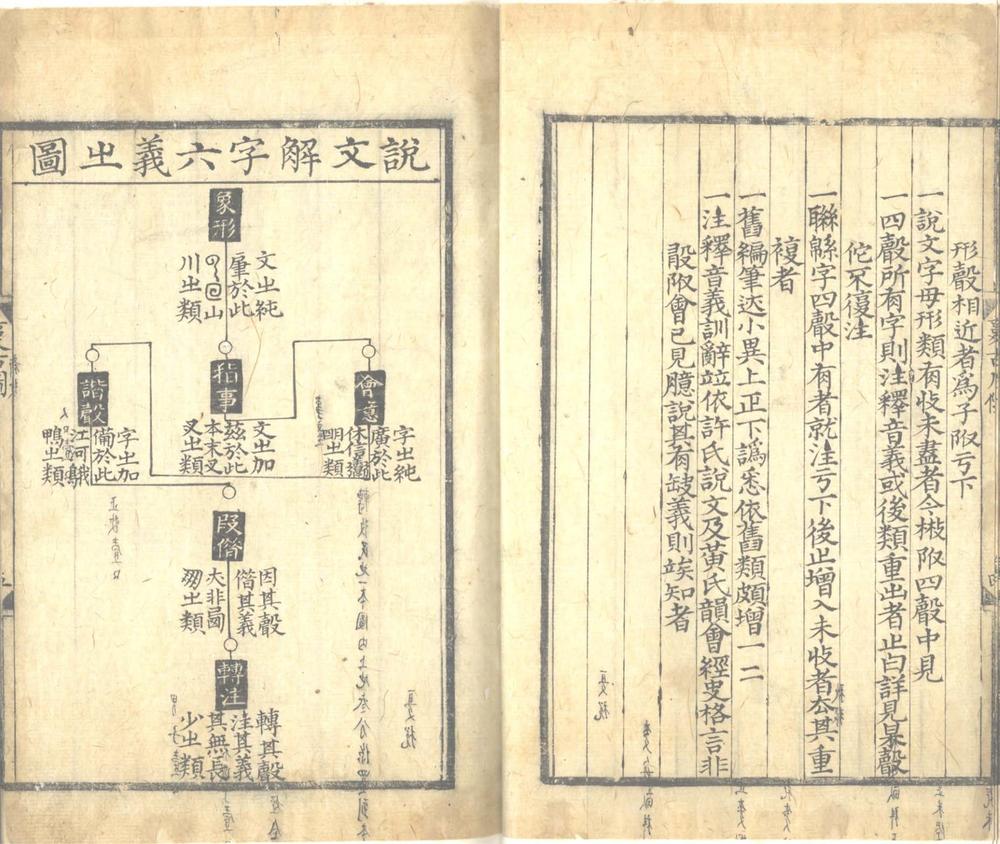 形聲相近者為子附于下
一說文字母形類有收未盡者今檢附四聲中見
一四聲所有字則注釋音義或後類重出者止白詳見某聲
佗不復注
一聯緜字四聲中有者就注于下後止增入未收者去其重
複者
一舊編筆迹小異上正下譌悉依舊類頗增一二
一注釋音義訓辭竝依許氏說文及黃氏韻會經史格言非
段附會已見臆說其有缺義則竢知者
說文解字六義之圖
象形
文之純
肇於此
山
川之類
會意
字之純
廣於此
休信
明之類
指事
文之加
玆於此
本末叉
叉之類
諧聲
字之加
備於此
江河鵝
鴨之類
叚借
因其聲
借其義
夫非圖
之類
轉注
轉其聲
注其義
其無長
少之類